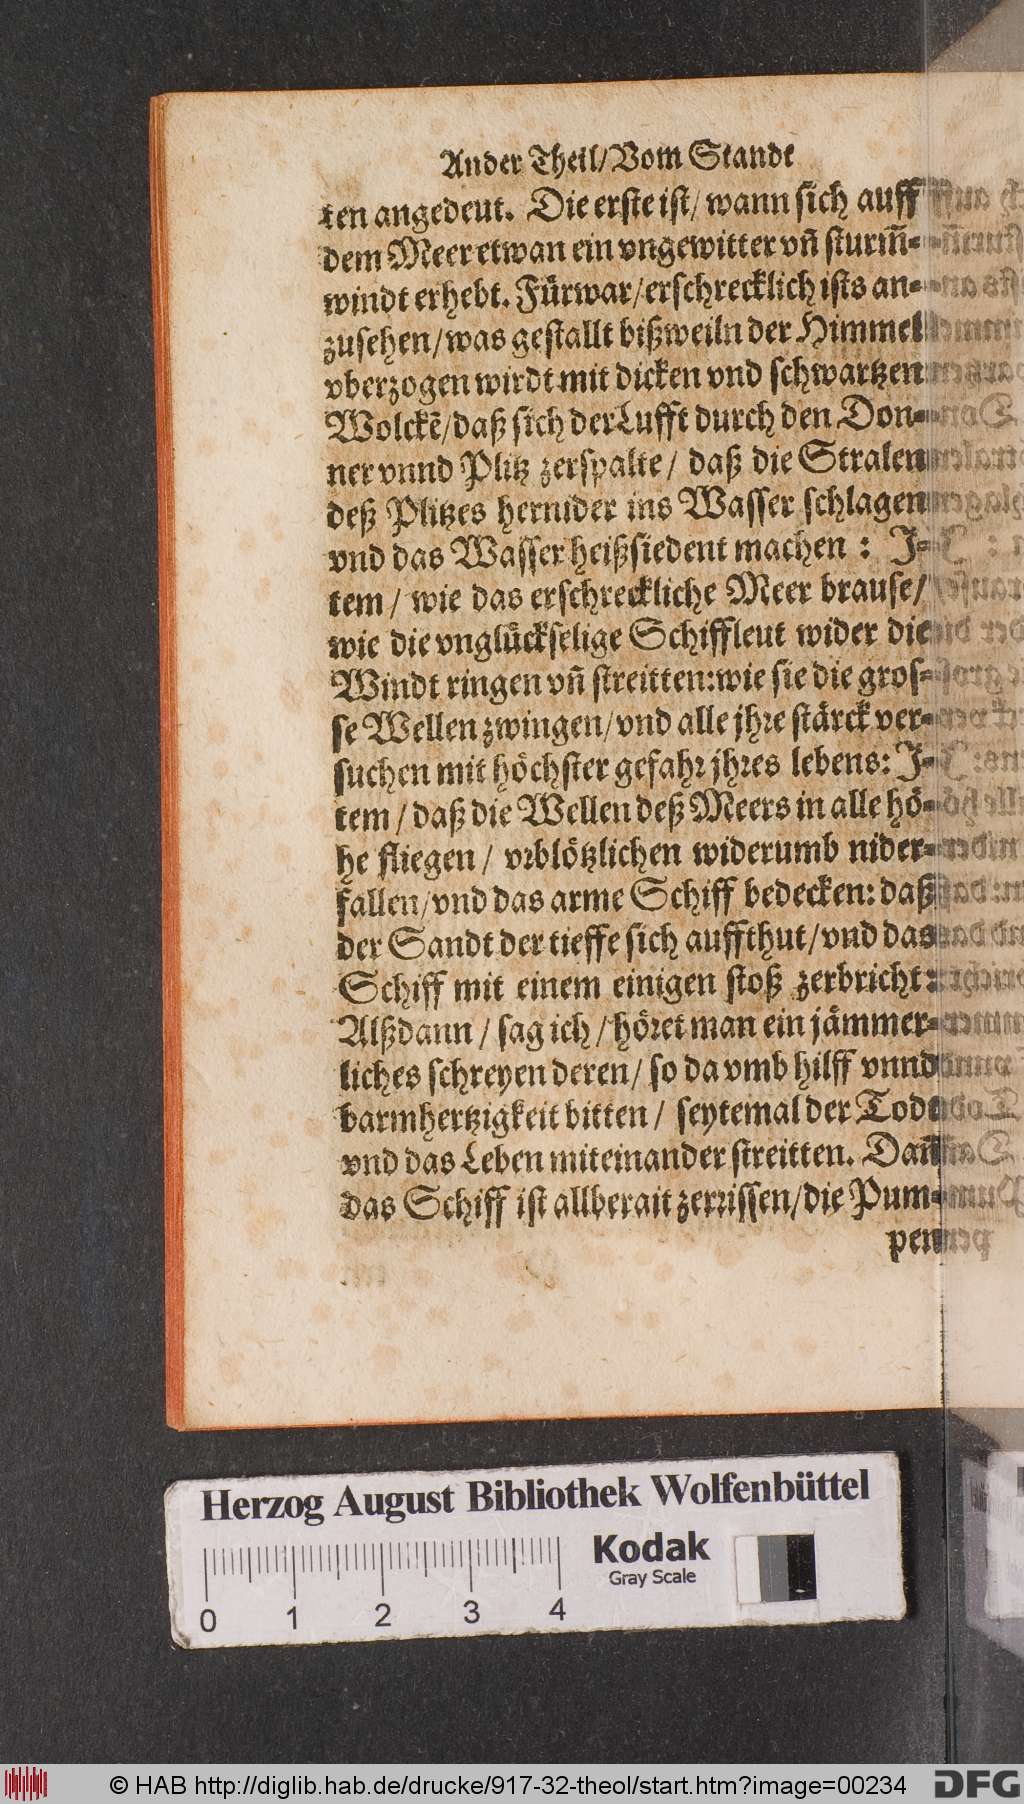 Ander Theil/Vom Standt
ten angedeut. Die erste ist/ wann sich auff
dem Meer etwan ein vngewitter vñ sturm̃-
windt erhebt. Fürwar/erschrecklich ists an-
zusehen/was gestallt bißweiln der Himmel
vberzogen wirdt mit dicken vnd schwartzen
Wolckẽ/daß sich der Lufft durch den Don-
ner vnnd Plitz zerspalte/ daß die Stralen
deß Plitzes hernider ins Wasser schlagen
vnd das Wasser heißsiedent machen : J-
tem/ wie das erschreckliche Meer brause/
wie die vnglückselige Schiffleut wider die
Windt ringen vñ streitten:wie sie die gros-
se Wellen zwingen/vnd alle jhre stärck ver-
suchen mit höchster gefahr jhres lebens: J-
tem/daß die Wellen deß Meers in alle hö-
he fliegen/ vrblötzlichen widerumb nider-
fallen/vnd das arme Schiff bedecken: daß
der Sandt der tieffe sich auffthut/vnd das
Schiff mit einem einigen stoß zerbricht:
Alßdann/ sag ich/ höret man ein jämmer-
liches schreyen deren/ so da vmb hilff vnnd
barmhertzigkeit bitten/ seytemal der Todt
vnd das Leben miteinander streitten. Dañ
das Schiff ist allberait zerrissen/die Pum-
pen
Herzog August Bibliothek Wolfenbüttel
Kodak
Gray Scale
0 1 2 3 4
© HAB http://diglib.hab.de/drucke/917-32-theol/start.htm?image=00234
DFG